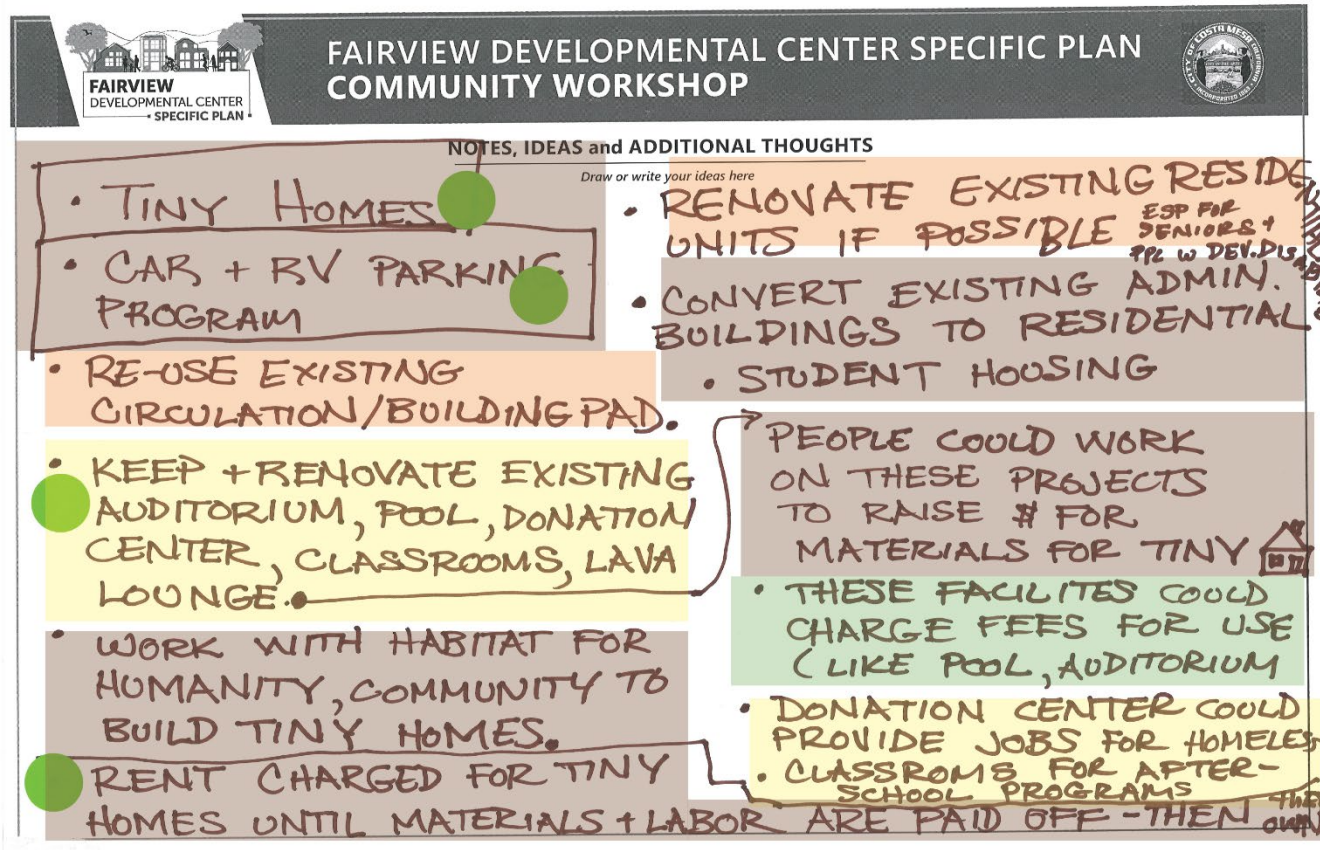 FAIRVIEW
DEVELOPMENTAL CENTER
SPECIFIC PLAN
FAIRVIEW DEVELOPMENTAL CENTER SPECIFIC PLAN
COMMUNITY WORKSHOP
CITY OF COSTA MESA CALIFORNIA
INCORPORATED 1953
NOTES, IDEAS and ADDITIONAL THOUGHTS
Draw or write your ideas here
• TINY HOMES
• CAR + RV PARKING
PROGRAM
• RE-USE EXISTING
CIRCULATION/BUILDING PAD.
• KEEP + RENOVATE EXISTING
AUDITORIUM, POOL, DONATION
CENTER, CLASSROOMS, LAVA
LOUNGE.
• WORK WITH HABITAT FOR
HUMANITY, COMMUNITY TO
BUILD TINY HOMES.
RENT CHARGED FOR TINY
HOMES UNTIL MATERIALS + LABOR ARE PAID OFF - THEN
• RENOVATE EXISTING
UNITS IF POSSIBLE
ESP FOR
SENIORS +
PPL W DEV. DIS
• CONVERT EXISTING ADMIN.
BUILDINGS TO RESIDENTIAL
• STUDENT HOUSING
• PEOPLE COULD WORK
ON THESE PROJECTS
TO RAISE $ FOR
MATERIALS FOR TINY
• THESE FACILITES COULD
CHARGE FEES FOR USE
(LIKE POOL, AUDITORIUM
• DONATION CENTER COULD
PROVIDE JOBS FOR HOMELES
• CLASSROMS FOR AFTER-
SCHOOL PROGRAMS